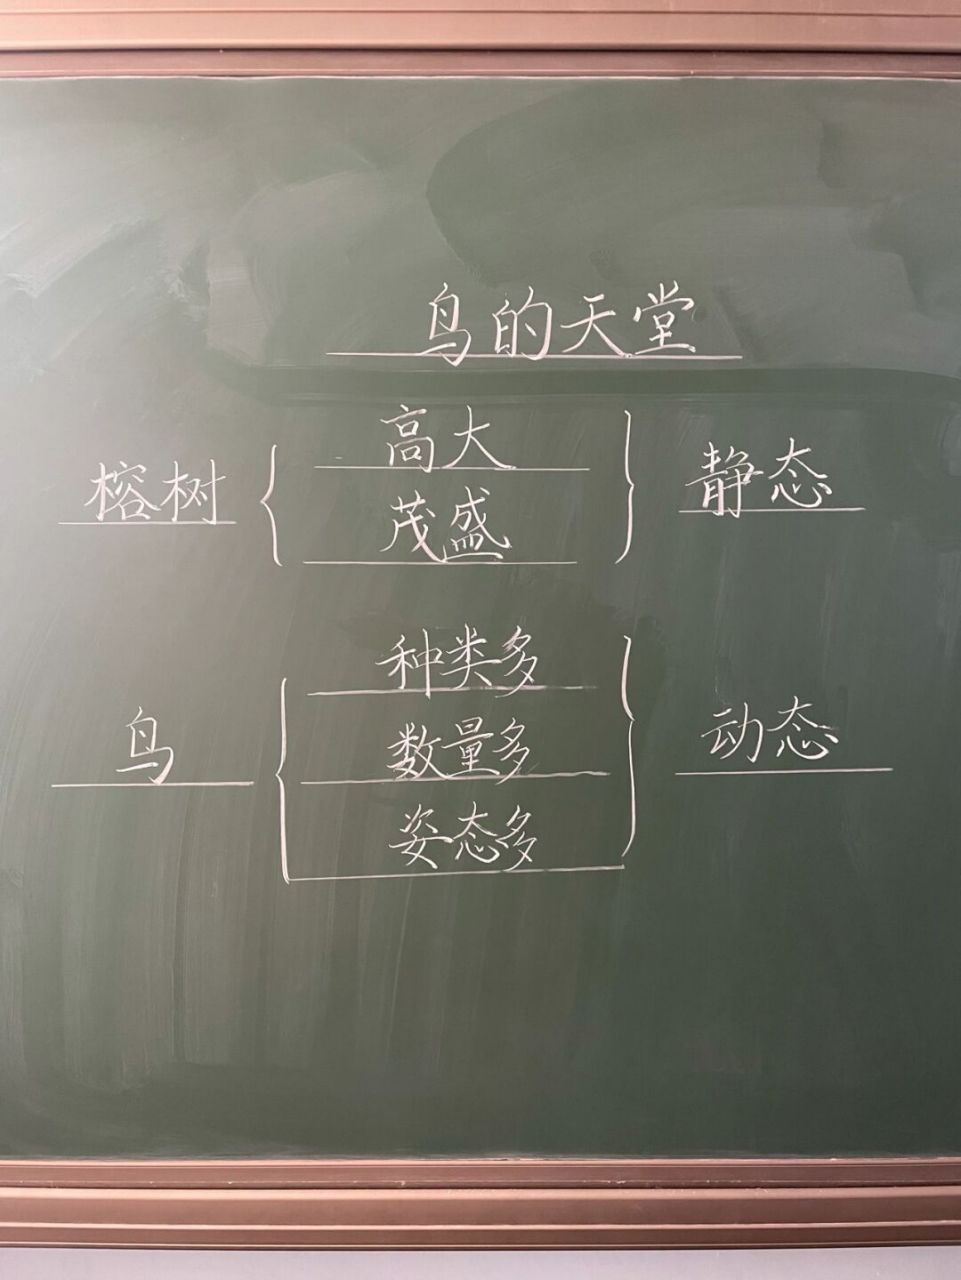 鸟的天堂
榕树
高大
茂盛
静态
鸟
种类多
数量多
姿态多
动态